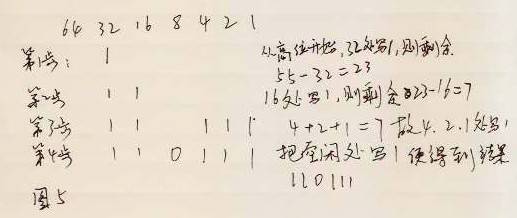 64 32 16 8 4 2 1
第1步: 1 从高位开始,32处写1,则剩余
55-32=23
第2步 1 1 16处写1,则剩余23-16=7
第3步 1 1 1 1 1 4+2+1=7 故4.2.1处写1
第4步 1 1 0 1 1 1 把空闲处写1 便得到结果
110111
图5